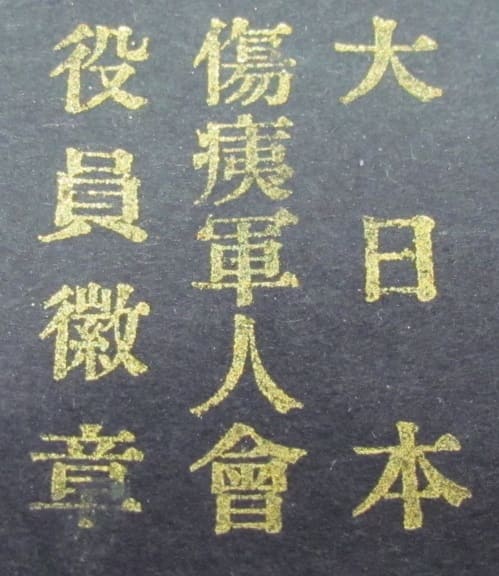 大日本
傷痍軍人會
役員徽章